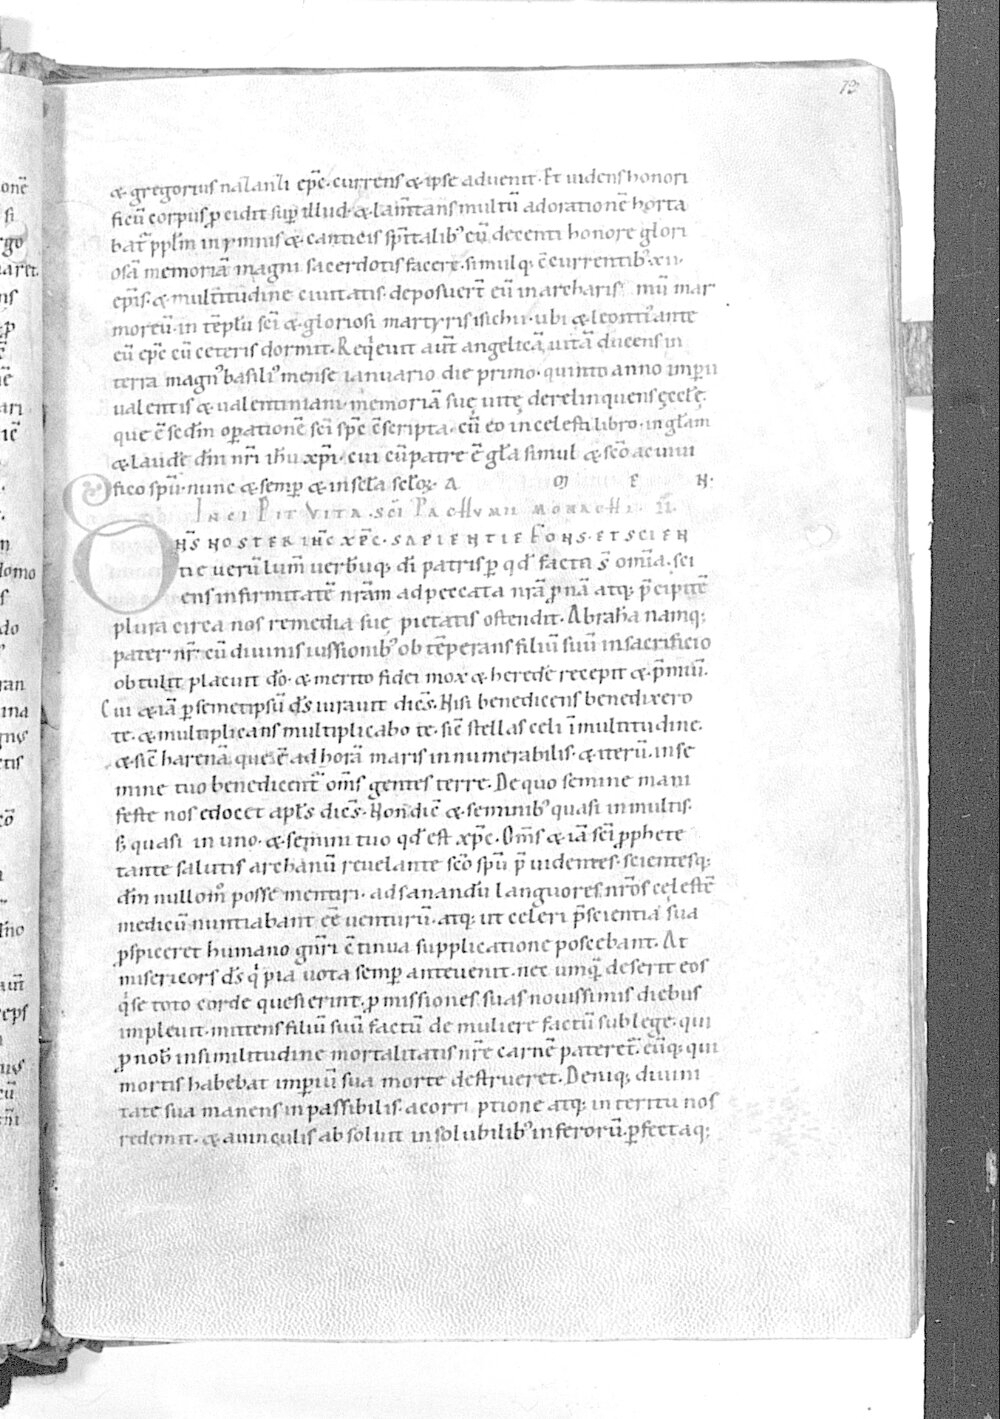 13
& gregorius nazanzi ep̄c. currens & ipse aduenit. Et uidens honori
ficū corpus p̱cidit sup̱ illud. & lam̄tans multū adorationē horta
bat̄ pp̄lm in ymnis & canticis sp̄italib; cū decenti honore glori
osā memoriā magni sacerdotis facere. simulq; c̄currentib; xii.
ep̄is. & multitudine ciuitatis. deposuer̄t eū in marmoreū
moreū. in tēplū sc̄i & gloriosi martyris ubi & leontiꝰ ante
eū ep̄c cū ceteris dormit. Reqͥeuit aūt angelicā uitā ducens in
terra magnꝰ basiliꝰ mense ianuario die primo. quinto anno imp̱ii
ualentis & ualentiniani. memoriā suę uitę derelinquens ęccl̄ę.
que ē sc̄dm op̱ationē sc̄i sp̄c c̄scripta. cū eo in celesti libro. in gl̄am
& laudē dn̄i nr̄i ih̄u xp̄i. cui cū patre ē gl̄a simul & sc̄o ac uiui
fico spū. nunc & semp̱ & in sc̄la sc̄loꝝ. A M E N.
INCIPIT VITA SC̄I PACHVMII MONACHI. II.
DN̄S NOSTER IHC̄ XP̄C. SAPIENTIE FONS. ET SCIEN
tie uerū lum̄ uerbūq; dī patris p̱ qd̄ facta s̄ om̄ia. sci
ens infirmitatē nr̄am ad peccata nr̄a p̱nā atq; p̄cipitē
plura circa nos remedia suę pietatis ostendit. Abrahā namq;
pater nr̄ cū diuinis iussionib; obtēperans filiū suū in sacrificio
obtulit placuit dō. & merito fidei mox & herede recepit & p̄miū.
Cui & iā p̱ semetipsū ds̄ iurauit dic̄s. Nisi benedicens benedixero
te. & multiplicans multiplicabo te. sic̄ stellas celi ī multitudine.
& sic̄ harenā que ē ad horā maris innumerabilis. & iterū. in se
mine tuo benedicent̄ om̄s gentes terre. De quo semine mani
feste nos edocet apl̄s dic̄s. Non dic̄ & seminib; quasi in multis.
s; quasi in uno. & semini tuo qd̄ est xp̄c. Om̄s & iā sc̄i p̱phete
tante salutis archanū reuelante sc̄o spū p̄uidentes. scientesq;
dn̄m null om̊ posse mentiri. ad sanandū languores nr̄os cęlestē
medicū nuntiabant ēē uenturū. atq; ut celeri p̄scientia sua
p̱spiceret humano gn̄ri c̄tinua supplicatione poscebant. At
misericors ds̄ qͥ pia uota semp̱ anteuenit. nec umqͣ deserit eos
qͥ se toto corde quesierint. p̱missiones suas nouissimis diebus
impleuit. mittens filiū suū factū de muliere factū sub lege. qui
p̱ nob̄ in similitudine mortalitatis nr̄e carnē pateret̄. eūq; qui
mortis habebat imp̱iū sua morte destrueret. Deniq; diuini
tate sua manens inpassibilis. a corruptione atq; interitu nos
redemit. & a uinculis absoluit insolubilib; inferorū. p̱fectaq;